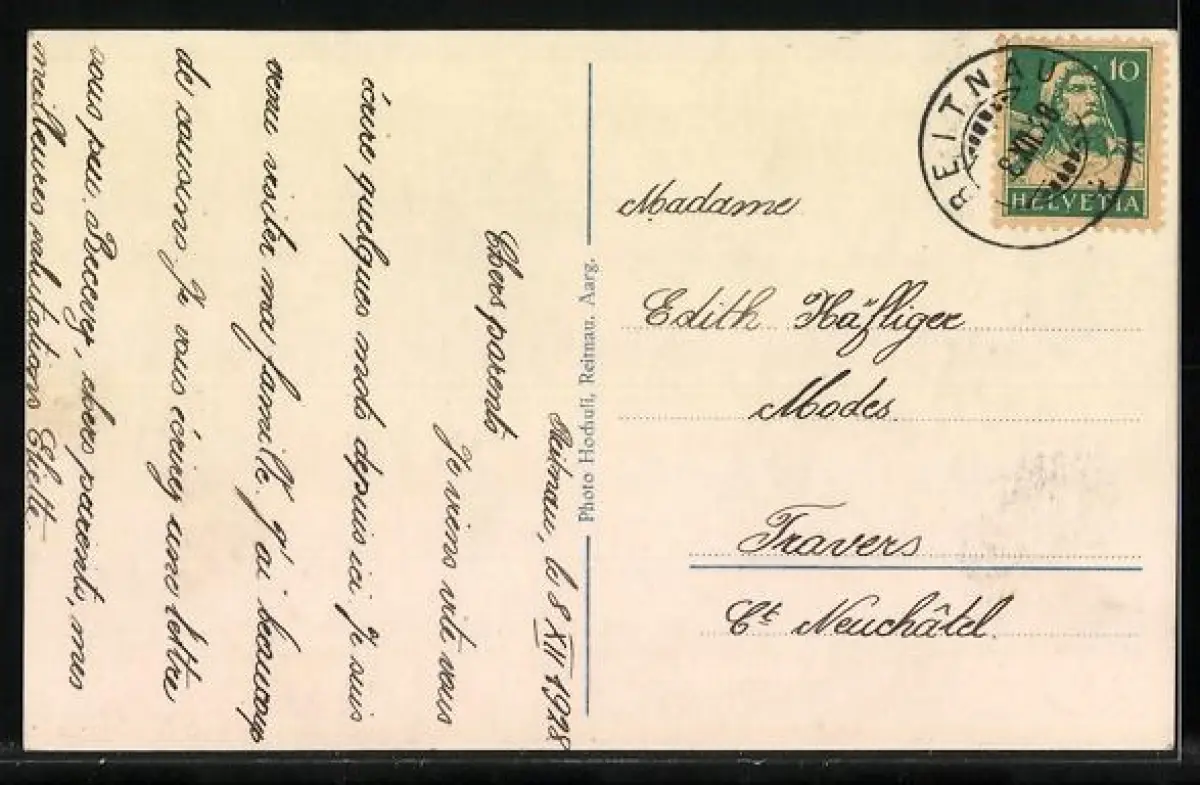 Reitnau, le 8 XII 1928
Chers parents
Je viens vite vous
écrire quelques mots depuis ici je suis
venu visiter ma famille. J'ai beaucoup
de cousins. Je vous écrirez une lettre
sous peu. Recever, chers parents, mes
meilleures salutations
Photo Hochuli, Reitnau, Aarg.
REITNAU
8.XII.28
10
HELVETIA
Madame
Edith Häfliger
Modes
Travers
Ct. Neuchâtel.